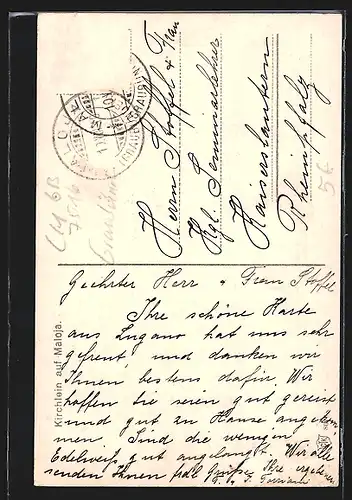 Herrn Stoffel & Frau
Kgl. Seminarlehrer
Kaiserslautern
Rheinpfalz
56
LM 6B
7516
Kirchlein auf Maloja.
Geehrter Herr & Frau Stoffel
Ihre schöne Karte
aus Lugano hat uns sehr
gefreut, und danken wir
Ihnen bestens dafür. Wir
hoffen Sie seien gut gereist
und gut zu Hause angekom
men. Sind die wenigen
Edelweiß gut angelangt. Wir alle
senden Ihnen frdl Grüße. Ihre ergebenen